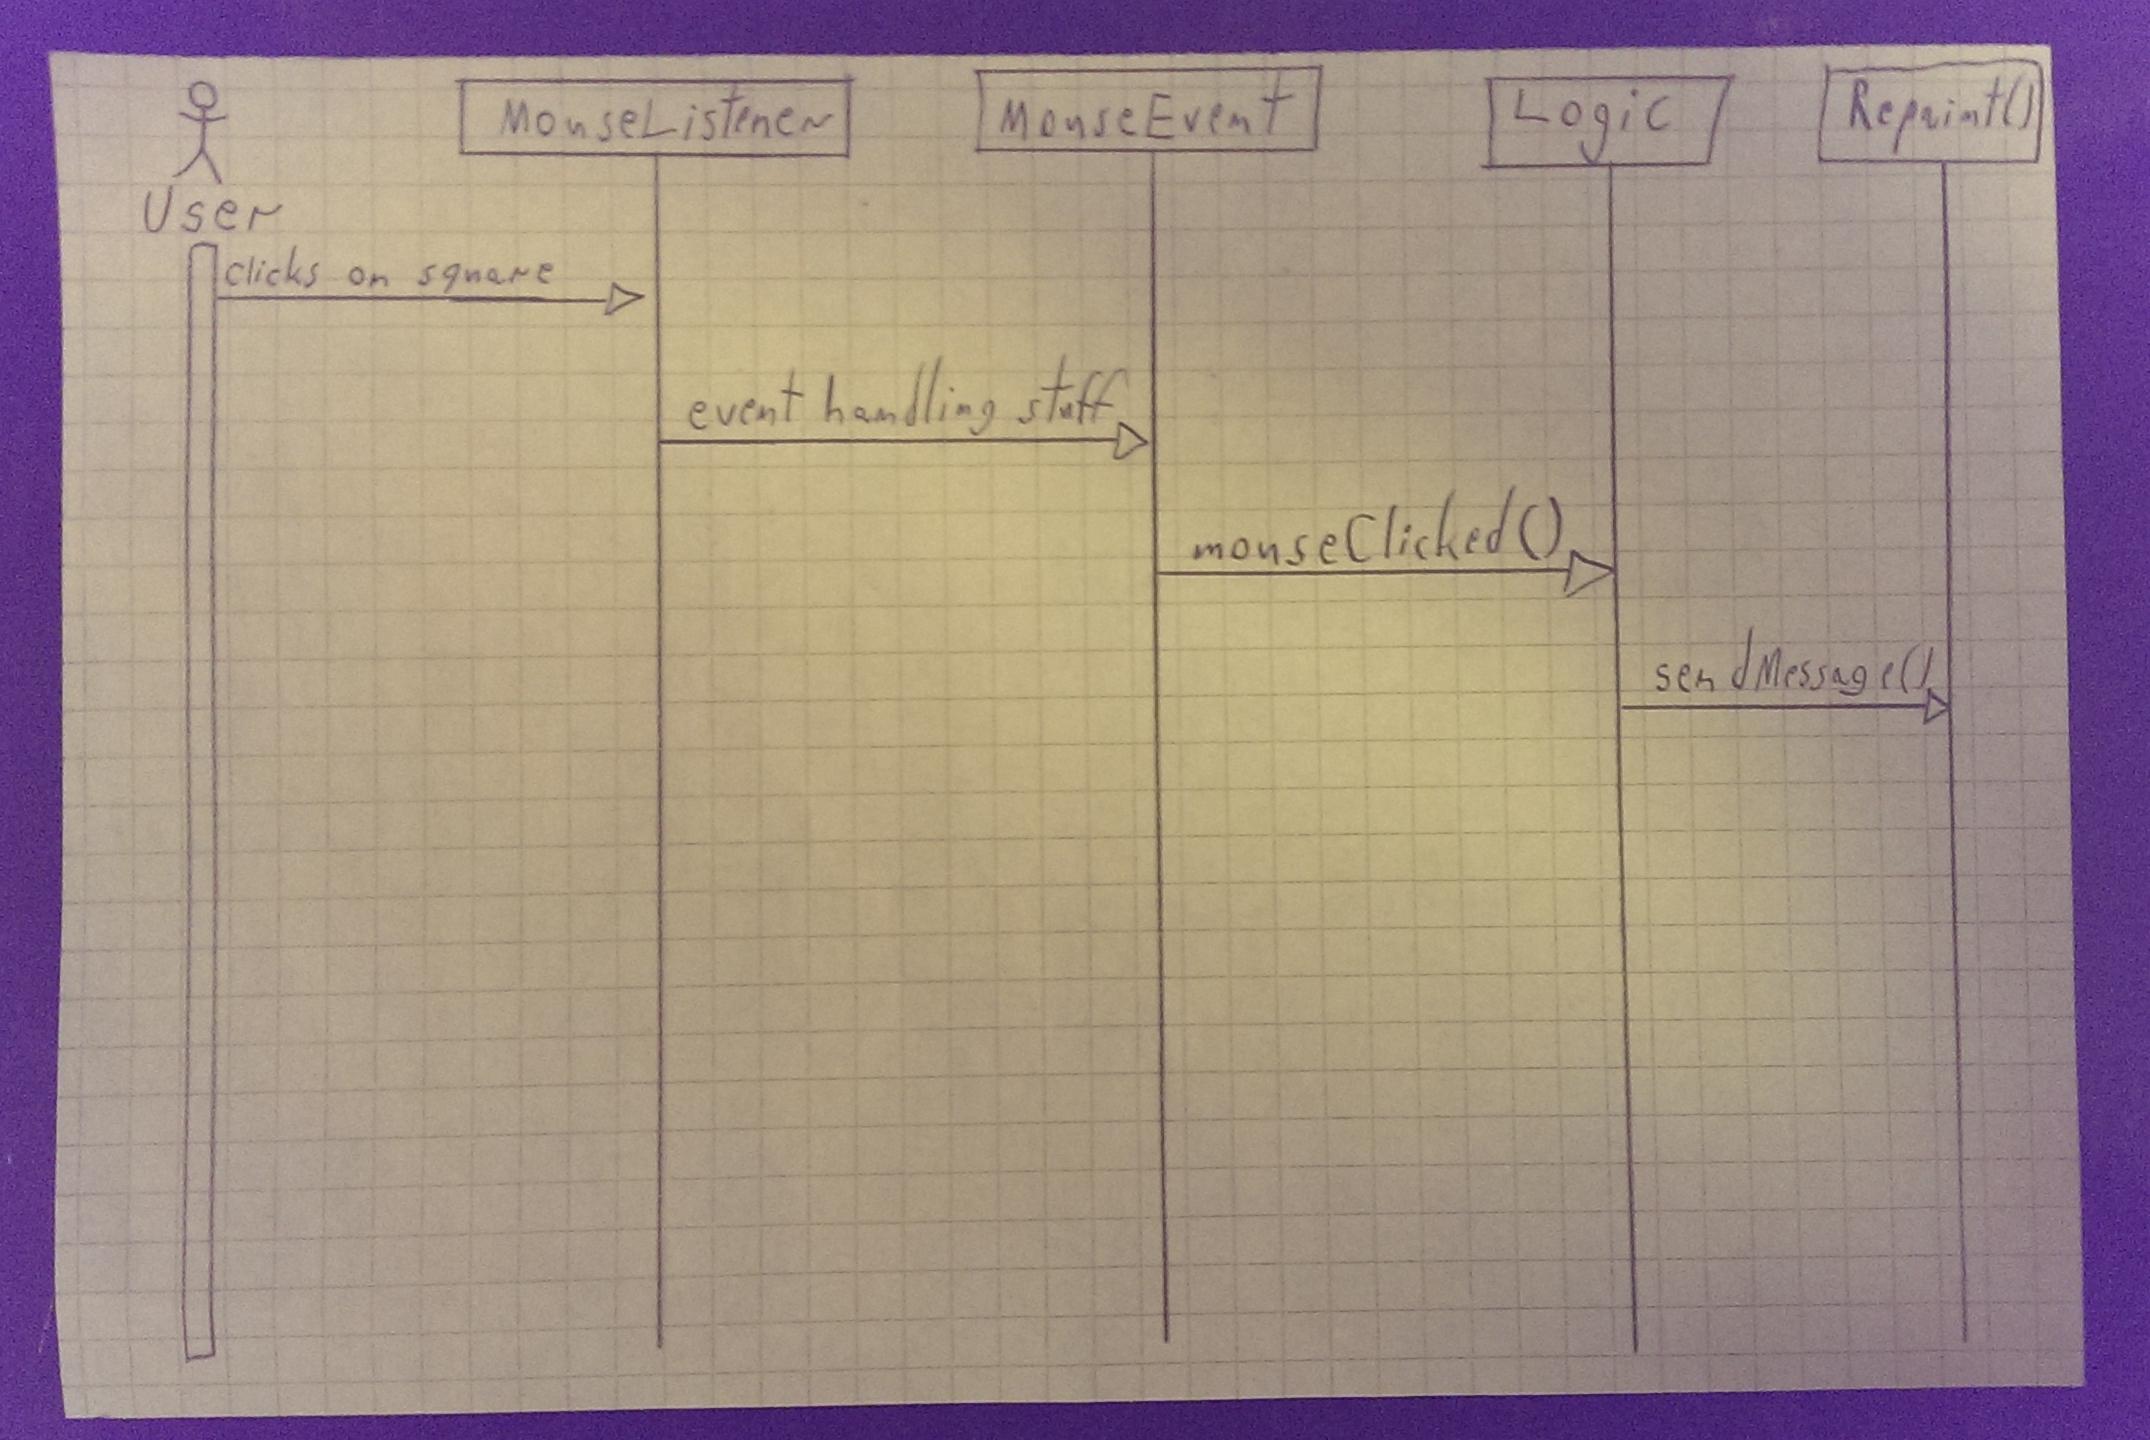 User
MouseListener
MouseEvent
Logic
Repaint()
clicks on square
event handling stuff
mouseClicked()
sendMessage()